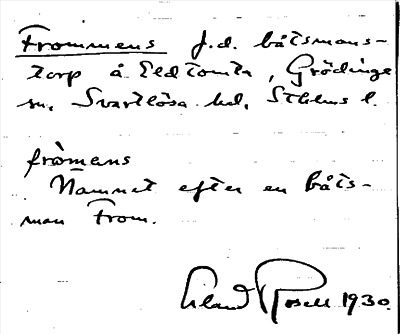 Frommens f.d. båtsmans-
torp å Eldtomta, Grödinge
sn, Svartlösa hd, Sthlms l.
fròmens
Namnet efter en båts-
man From.
Erland Rosell 1930.